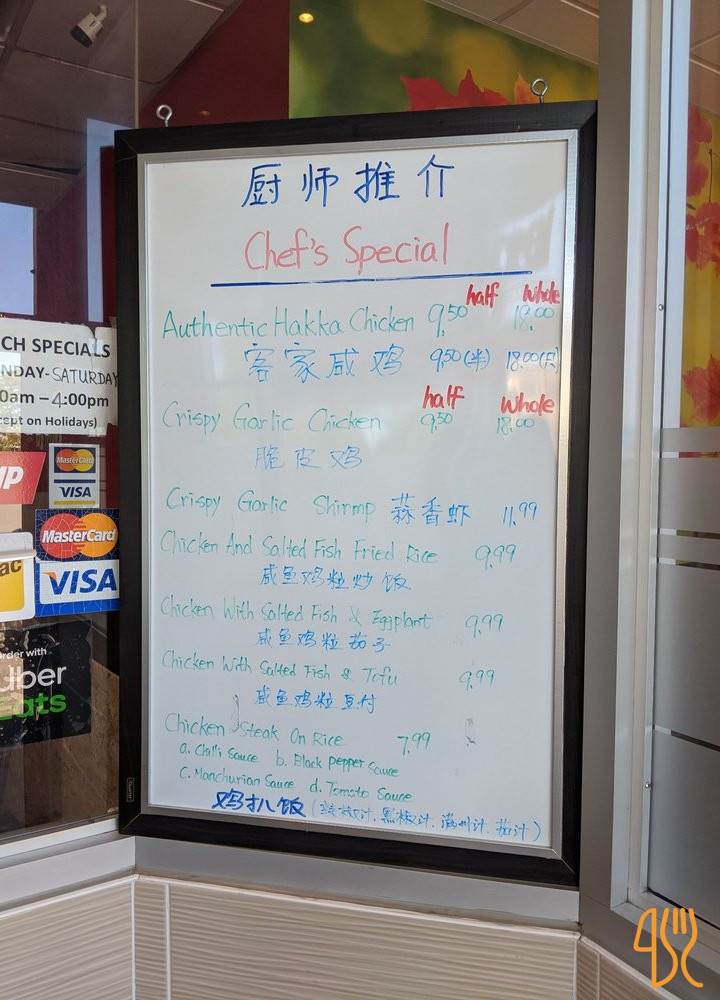 厨师推介
Chef's Special
half whole
Authentic Hakka Chicken 9.50 18.00
客家咸鸡 9.50(半) 18.00(只)
half whole
Crispy Garlic Chicken 9.50 18.00
脆皮鸡
Crispy Garlic Shirmp 蒜香虾 11.99
Chicken And Salted Fish Fried Rice 9.99
咸鱼鸡粒炒饭
Chicken With Salted Fish & Eggplant 9.99
咸鱼鸡粒茄子
Chicken With Salted Fish & Tofu 9.99
咸鱼鸡粒豆付
Chicken Steak On Rice 7.99
a. Chilli Sauce b. Black pepper Sauce
c. Manchurian Sauce d. Tomato Sauce
鸡扒饭 (辣椒汁. 黑椒汁. 满州汁. 茄汁)
CH SPECIALS
NDAY-SATURDAY
0am – 4:00pm
cept on Holidays)
MasterCard
VISA
MasterCard
VISA
ac
rder with
Uber
Eats